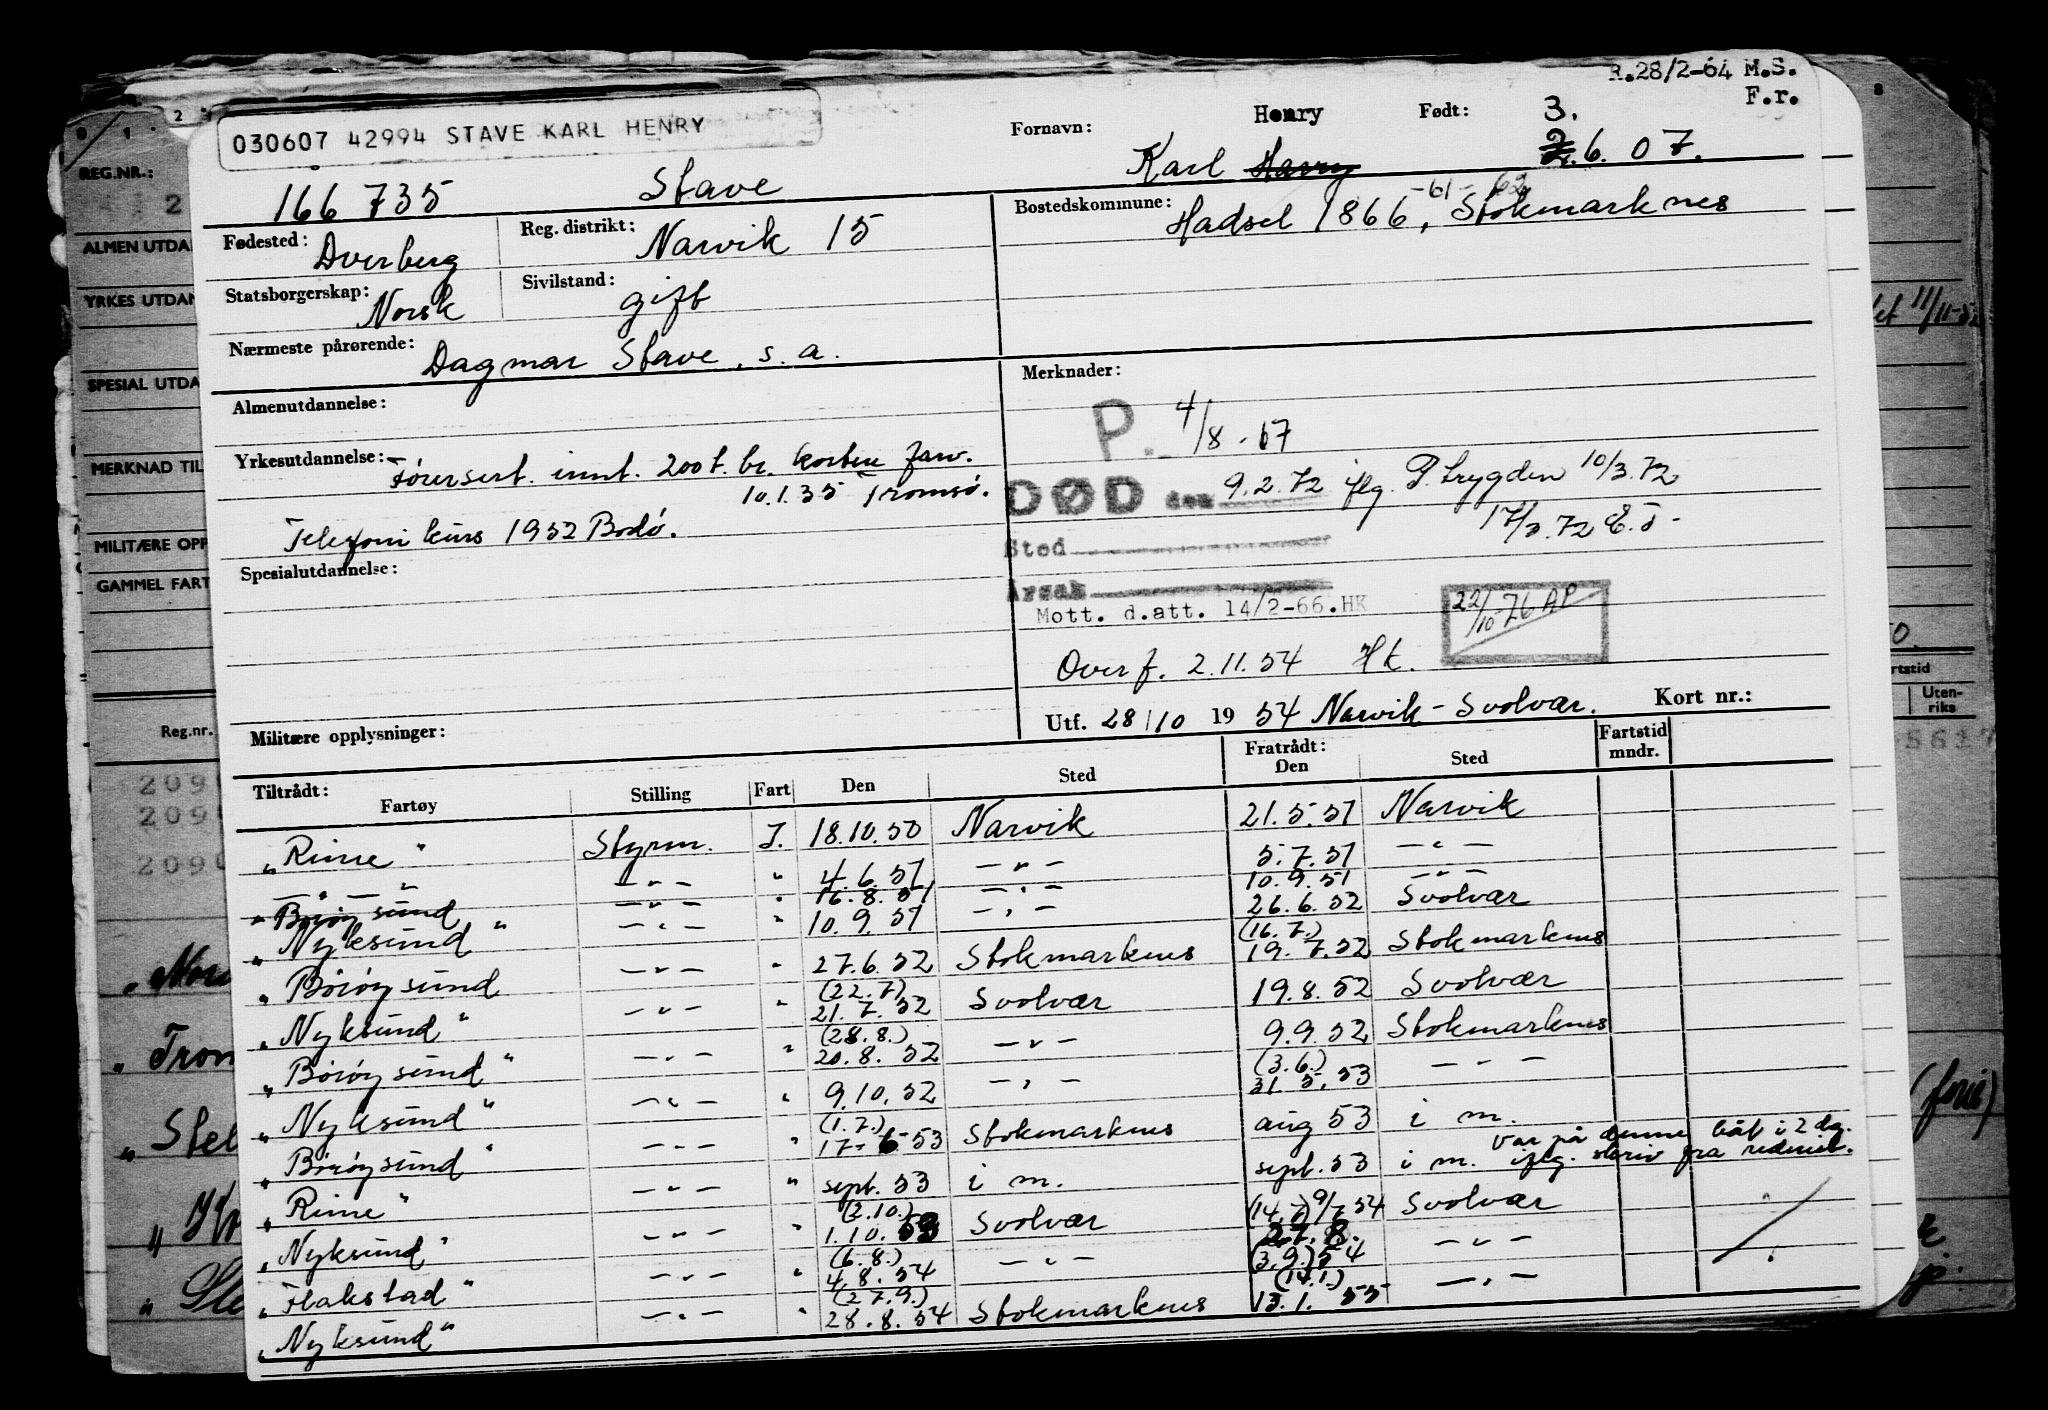 R.28/2-64 M.S.
F.r.
030607 42994 STAVE KARL HENRY
166 735 Stave
Fornavn: Karl Harry Henry
Født: 3. 2. 6. 07.
Fødested: Dverberg
Reg. distrikt: Narvik 15
Bostedskommune: Hadsel 1866 -61- 62, Stokmarknes
Statsborgerskap: Norsk
Sivilstand: gift
Nærmeste pårørende: Dagmar Stave, s.a.
Almenutdannelse:
Yrkesutdannelse: Førersert. innt. 200 t. br. kortere farv.
10.1.35 Tromsø.
Telefoni kurs 1952 Bodø.
Spesialutdannelse:
Militære opplysninger:
Merknader:
P. 4/8-67
DØD den 9.2.72 iflg. P. trygden 10/3.72
17/3.72 E.T-
Sted
Årsak
Mott. d.att. 14/2-66.HK
22/10-76 AP
Overf. 2.11.54 Hk.
Utf. 28/10 1954 Narvik - Svolvær.
Kort nr.:
Tiltrådt: Fartøy Stilling Fart Den Sted Fratrådt: Den Sted Fartstid mndr.
"Rime" Styrm. I. 18.10.50 Narvik 21.5.51 Narvik
— " — " — " — " 4.6.51 — " — 5.7.51 — " —
"Børøysund — " — " 16.8.51 — " — 10.9.51 — " —
"Nyksund" — " — " 10.9.51 — " — 26.6.52 Svolvær
"Børøysund — " — " 27.6.52 Stokmarknes (16.7.) 19.7.52 Stokmarknes
"Nyksund" — " — " (22.7) 21.7.52 Svolvær 19.8.52 Svolvær
"Børøysund" — " — " (28.8.) 20.8.52 — " — 9.9.52 Stokmarknes
"Nyksund" — " — " 9.10.52 — " — (3.6.) 31.5.53 — " —
"Børøysund" — " — " (1.7.) 17-6-53 Stokmarknes aug 53 i m.
"Rime" — " — " sept. 53 i m. sept. 53 i m. var på denne båt i 2 dg. iflg. skriv fra rederiet.
"Nyksund" — " — " (2.10.) 1.10.53 Svolvær (14.7) 9/7 54 Svolvær
"Flakstad" — " — " (6.8.) 4.8.54 — " — 27.8. (3.9.) 54 — " —
"Nyksund" — " — " (27.9.) 28.8.54 Stokmarknes (14.1.) 13.1.55 — " —
REG.NR.:
ALMEN UTDA
YRKES UTDAN
SPESIAL UTDA
MERKNAD TIL
MILITÆRE OPP
GAMMEL FART
Reg.nr.
209
209
209
"Tron
"Stel
11/11-52
rtstid
Uten-
riks
5637